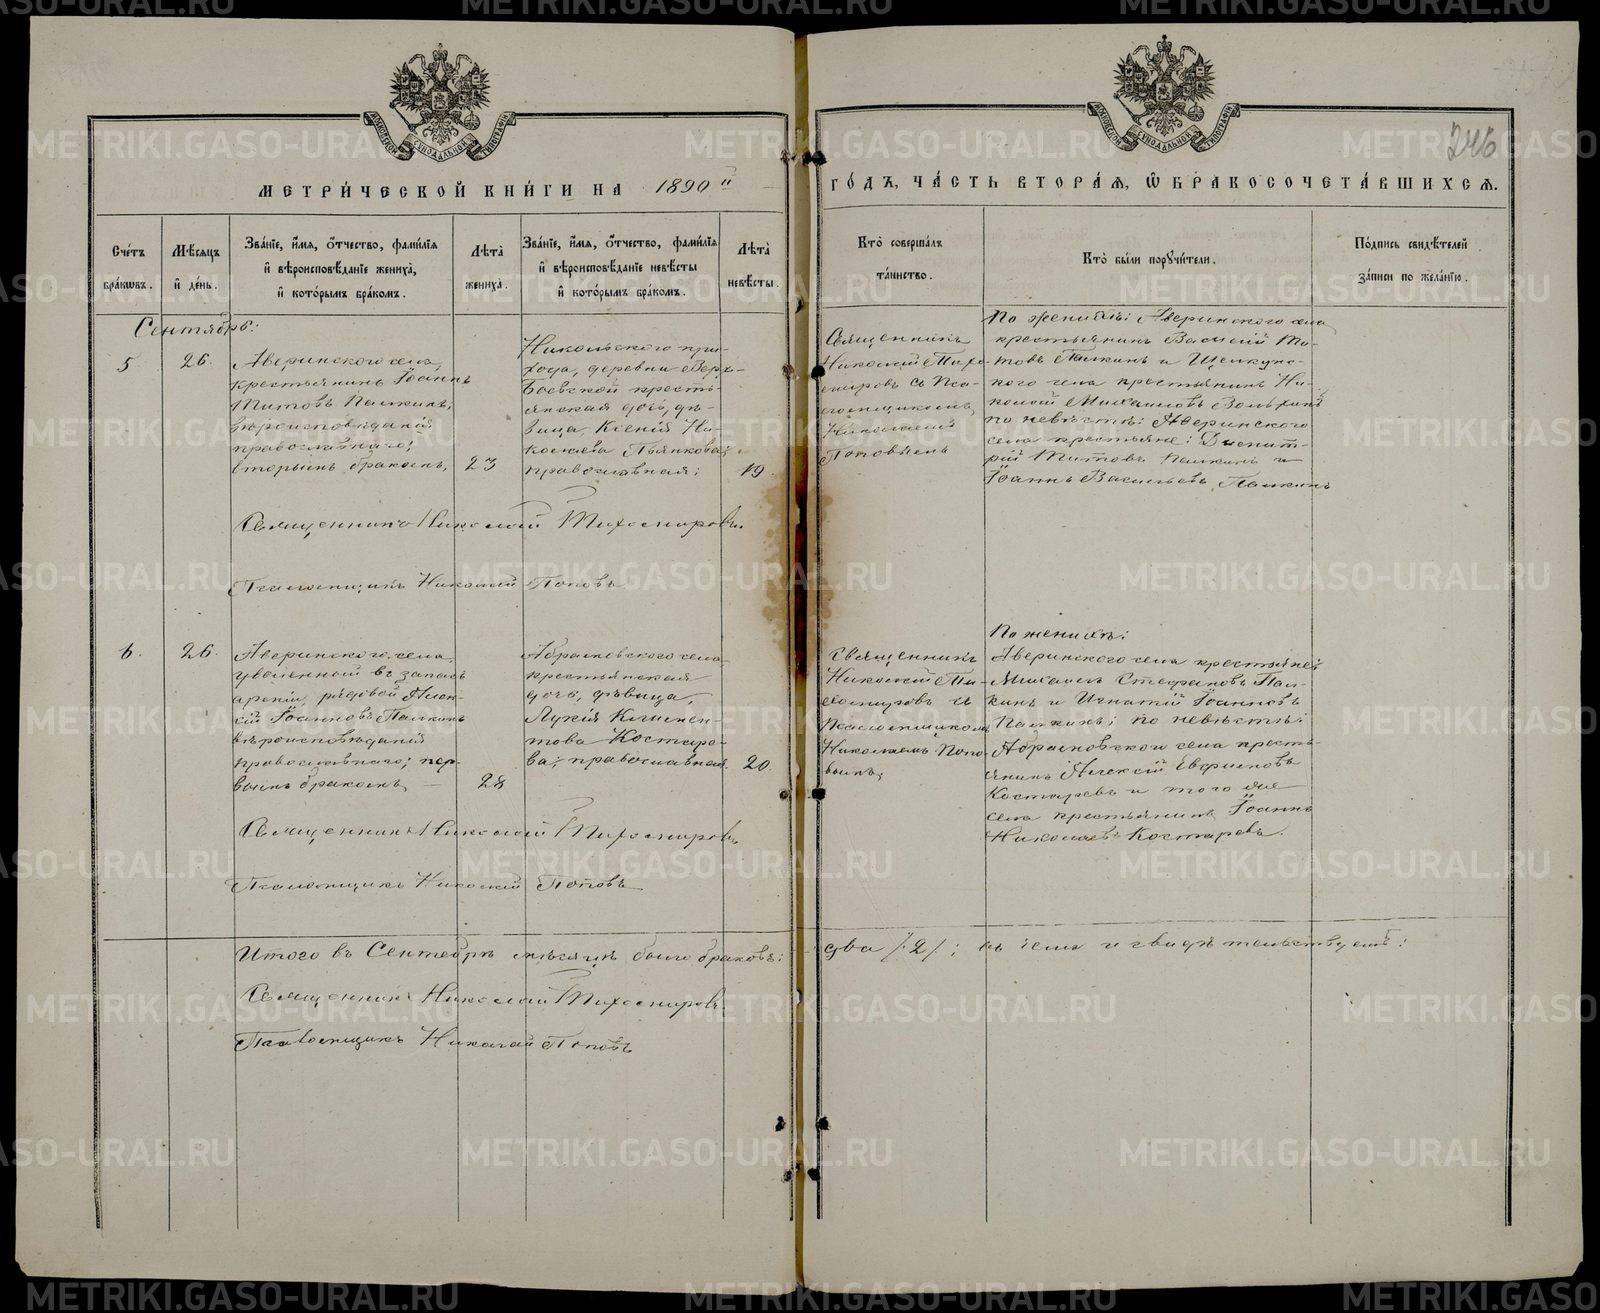 МЕТРИ́ЧЕСКОЙ КНИ́ГИ НА 1890й
ГО́ДЪ, ЧА́СТЬ ВТОРА́Я, Ѡ БРАКОСОЧЕТА́ВШИХСЯ.
246
Сче́тъ бра́кѡвъ.
Мѣ́сяцъ и́ де́нь.
Зва́нїе, и́мя, о́тчество, фами́лїя и́ вѣроисповѣ́данїе жениха̀, и́ кото́рымъ бра́комъ.
Лѣ́та жениха̀.
Зва́нїе, и́мя, о́тчество, фами́лїя и́ вѣроисповѣ́данїе невѣ́сты и́ кото́рымъ бра́комъ.
Лѣ́та невѣ́сты.
Кто̀ соверша́лъ та́инство.
Кто̀ бы́ли порꙋчи́тели.
По́дпись свидѣ́телей за́писи по жела́нїю.
Сентябрь:
5
26.
Аверинского села,
крестьянинъ Іоаннъ
Титовъ Палкинъ,
вѣроисповѣданія
православнаго;
вторымъ бракомъ,
23
Никольского при-
хода, деревни Верх-
Боевской кресть-
янская дочь, дѣ-
вица, Ксенія Ни-
колаева Пьянкова;
православная;
19.
Священникъ
Николай Тихо-
мировъ съ Пса-
ломщикомъ
Николаемъ
Поповымъ
По женихѣ: Аверинского села
крестьянинъ Василій Ти-
товъ Палкинъ и Щелкунс-
кого села крестьянинъ Ни-
колай Михаиловъ
по невѣстѣ: Аверинского
села крестьяне: Димит-
рій Титовъ Палкинъ и
Іоаннъ Васильевъ Палкинъ
Священникъ Николай Тихомировъ.
Псаломщикъ Николай Поповъ
6.
26.
Аверинского села,
уволенной въ запасъ
арміи, рядовой Алек-
сій Іоанновъ Палкинъ
вѣроисповѣданія
православнаго; пер-
вымъ бракомъ,
28
Абрамовского села
крестьянская
дочь, дѣвица,
Лукія Климен-
това Костаре-
ва; православная.
20.
Священникъ
Николай Ти-
хомировъ и
Псаломщикомъ
Николаемъ Попо-
вымъ,
По женихѣ:
Аверинского села крестьяне:
Михаилъ Стефановъ Пал-
кинъ и Игнатій Іоанновъ
Палкинъ; по невѣстѣ:
Абрамовского села кресть-
янинъ Алексій
Костаревъ и того же
села крестьянинъ Іоаннъ
Николаевъ Костаревъ.
Священникъ Николай Тихомировъ
Псаломщикъ Николай Поповъ
Итого въ Сентябрѣ мѣсяцѣ было браковъ: два /2/; въ чемъ и свидѣтельствуемъ:
Священникъ Николай Тихомировъ
Псаломщикъ Николай Поповъ
METRIKI.GASO-URAL.RU